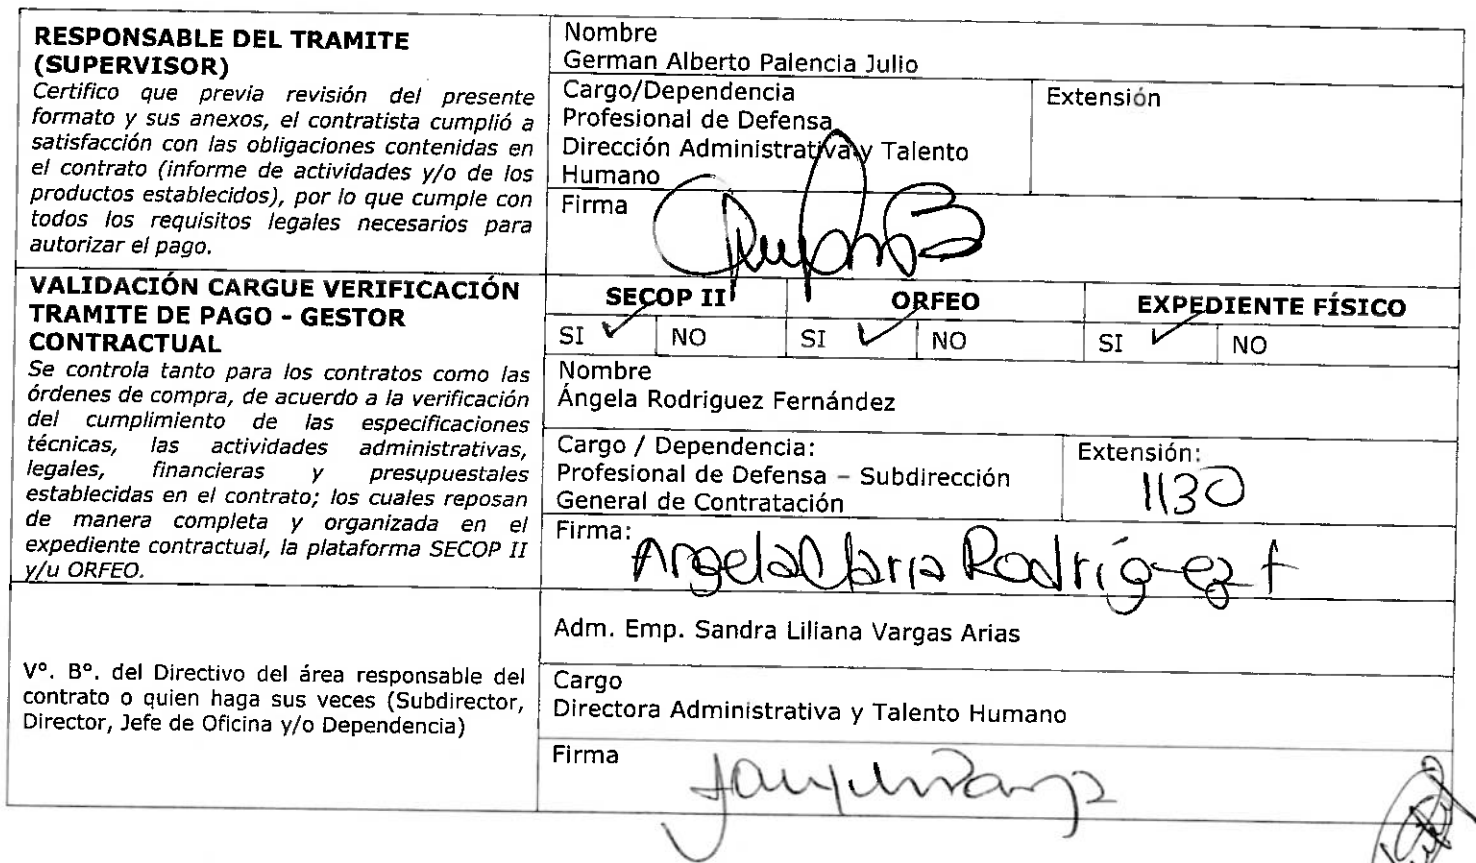 RESPONSABLE DEL TRAMITE
(SUPERVISOR)
Certifico que previa revisión del presente
formato y sus anexos, el contratista cumplió a
satisfacción con las obligaciones contenidas en
el contrato (informe de actividades y/o de los
productos establecidos), por lo que cumple con
todos los requisitos legales necesarios para
autorizar el pago.
Nombre
German Alberto Palencia Julio
Cargo/Dependencia
Profesional de Defensa
Dirección Administrativa y Talento
Humano
Extensión
Firma
VALIDACIÓN CARGUE VERIFICACIÓN
TRAMITE DE PAGO - GESTOR
CONTRACTUAL
Se controla tanto para los contratos como las
órdenes de compra, de acuerdo a la verificación
del cumplimiento de las especificaciones
técnicas, las actividades administrativas,
legales, financieras y presupuestales
establecidas en el contrato; los cuales reposan
de manera completa y organizada en el
expediente contractual, la plataforma SECOP II
y/u ORFEO.
SECOP II ORFEO EXPEDIENTE FÍSICO
SI ✓ NO SI ✓ NO SI ✓ NO
Nombre
Ángela Rodriguez Fernández
Cargo / Dependencia:
Profesional de Defensa – Subdirección
General de Contratación
Extensión:
1130
Firma:
Angela Maria Rodríguez f
Vº. Bº. del Directivo del área responsable del
contrato o quien haga sus veces (Subdirector,
Director, Jefe de Oficina y/o Dependencia)
Adm. Emp. Sandra Liliana Vargas Arias
Cargo
Directora Administrativa y Talento Humano
Firma